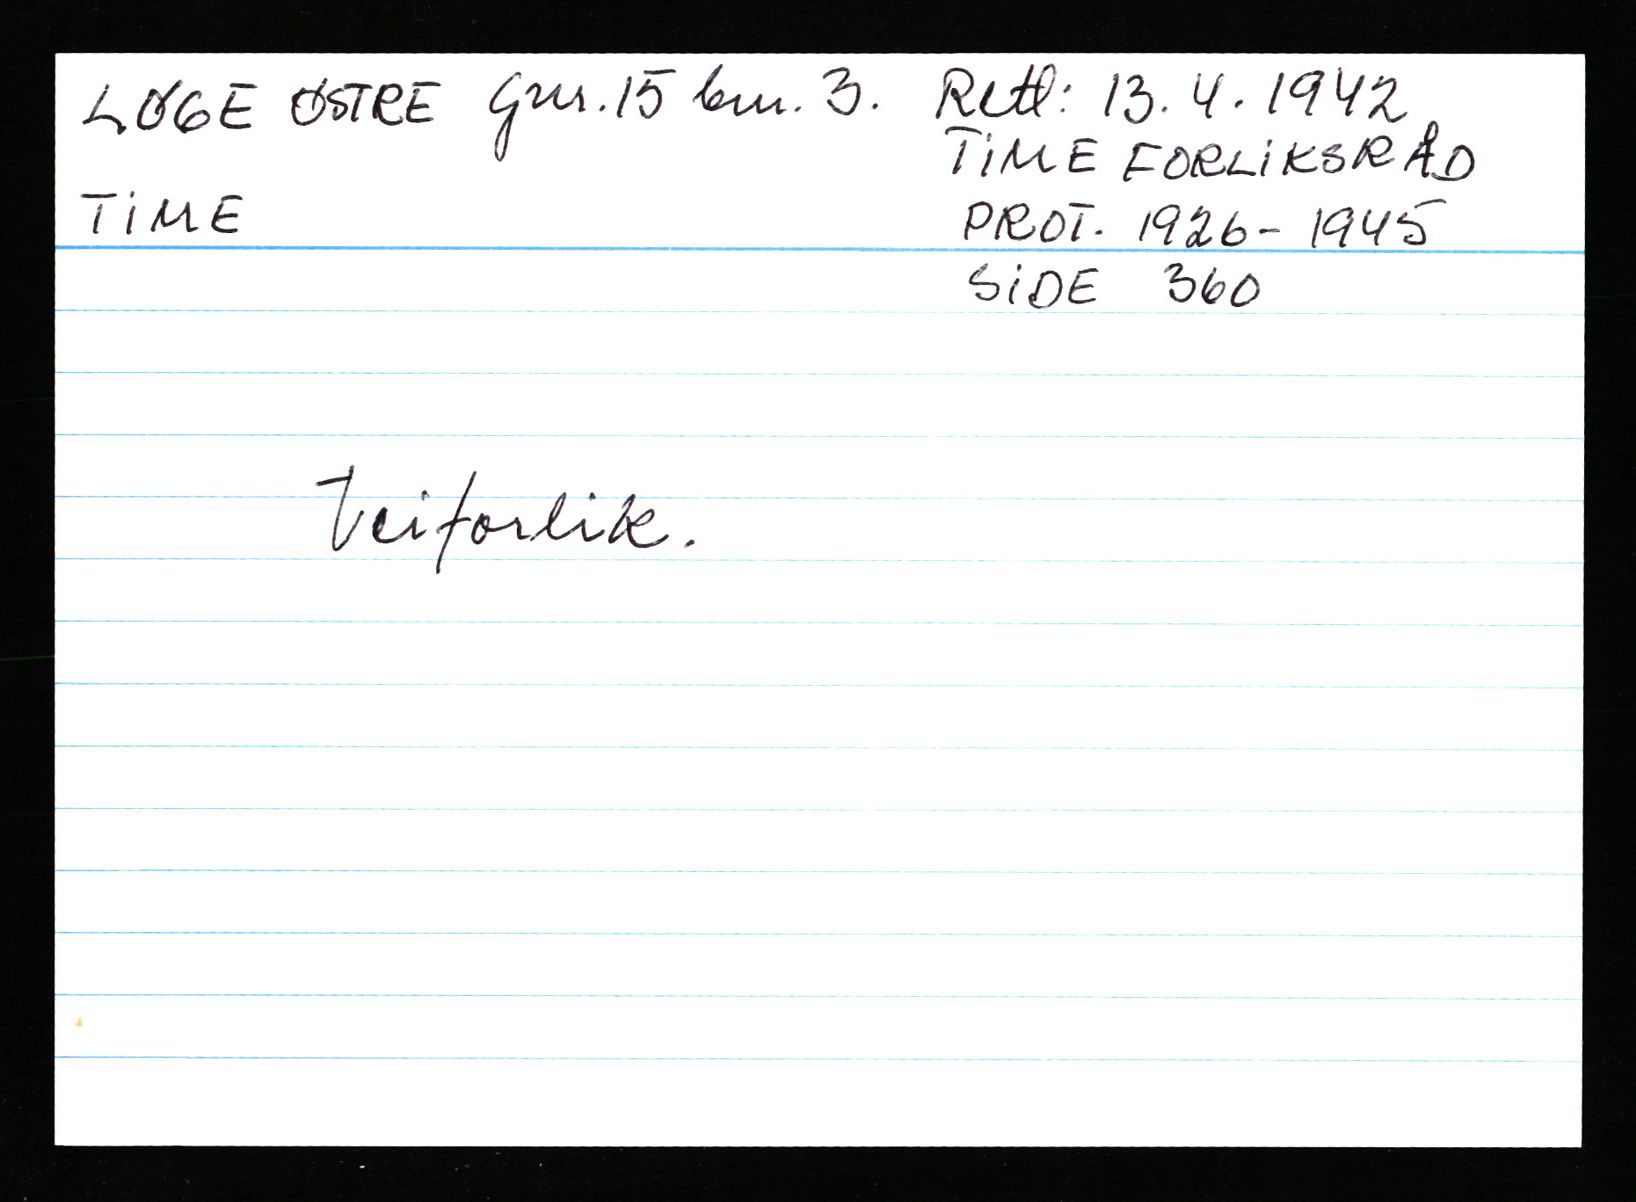 LØGE ØSTRE Gnr. 15 bnr. 3. Retl: 13. 4. 1942
TiME FORLiKSRÅD
TiME
PROT. 1926 - 1945
SiDE 360
Veiforlik.